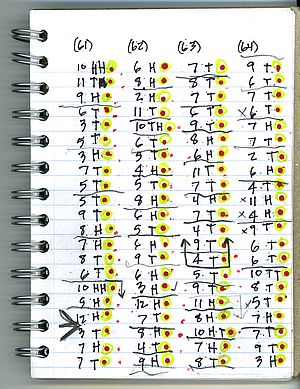 (61) (62) (63) (64)
10 HH 6 H 7 T 9 T
11 T 3 H 8 T 6 T
9 H 2 H 7 T 7 T
6 T 11 T 6 T x 6 T
3 T 10 TH 9 T 7 H
5 T 6 T 8 H 7 T
3 H 5 T 6 H 2 T
7 T 4 H 11 T 6 T
5 T 5 H 7 T 4 T
5 T 8 H 4 T x 11 H
9 T 6 T 5 T x 4 H
8 H 5 T 4 T x 9 T
7 H 6 H 9 T 6 T
8 T 9 T 4 T 6 T
6 T 6 H 5 T 10 T
10 HH 3 H 9 T 8 T
5 H 12 H 11 H x 5 T
12 H 7 H 8 H 7 T
3 T 8 H 10 H 7 H
7 H 4 T 7 H 9 T
7 T 9 H 8 T 3 H